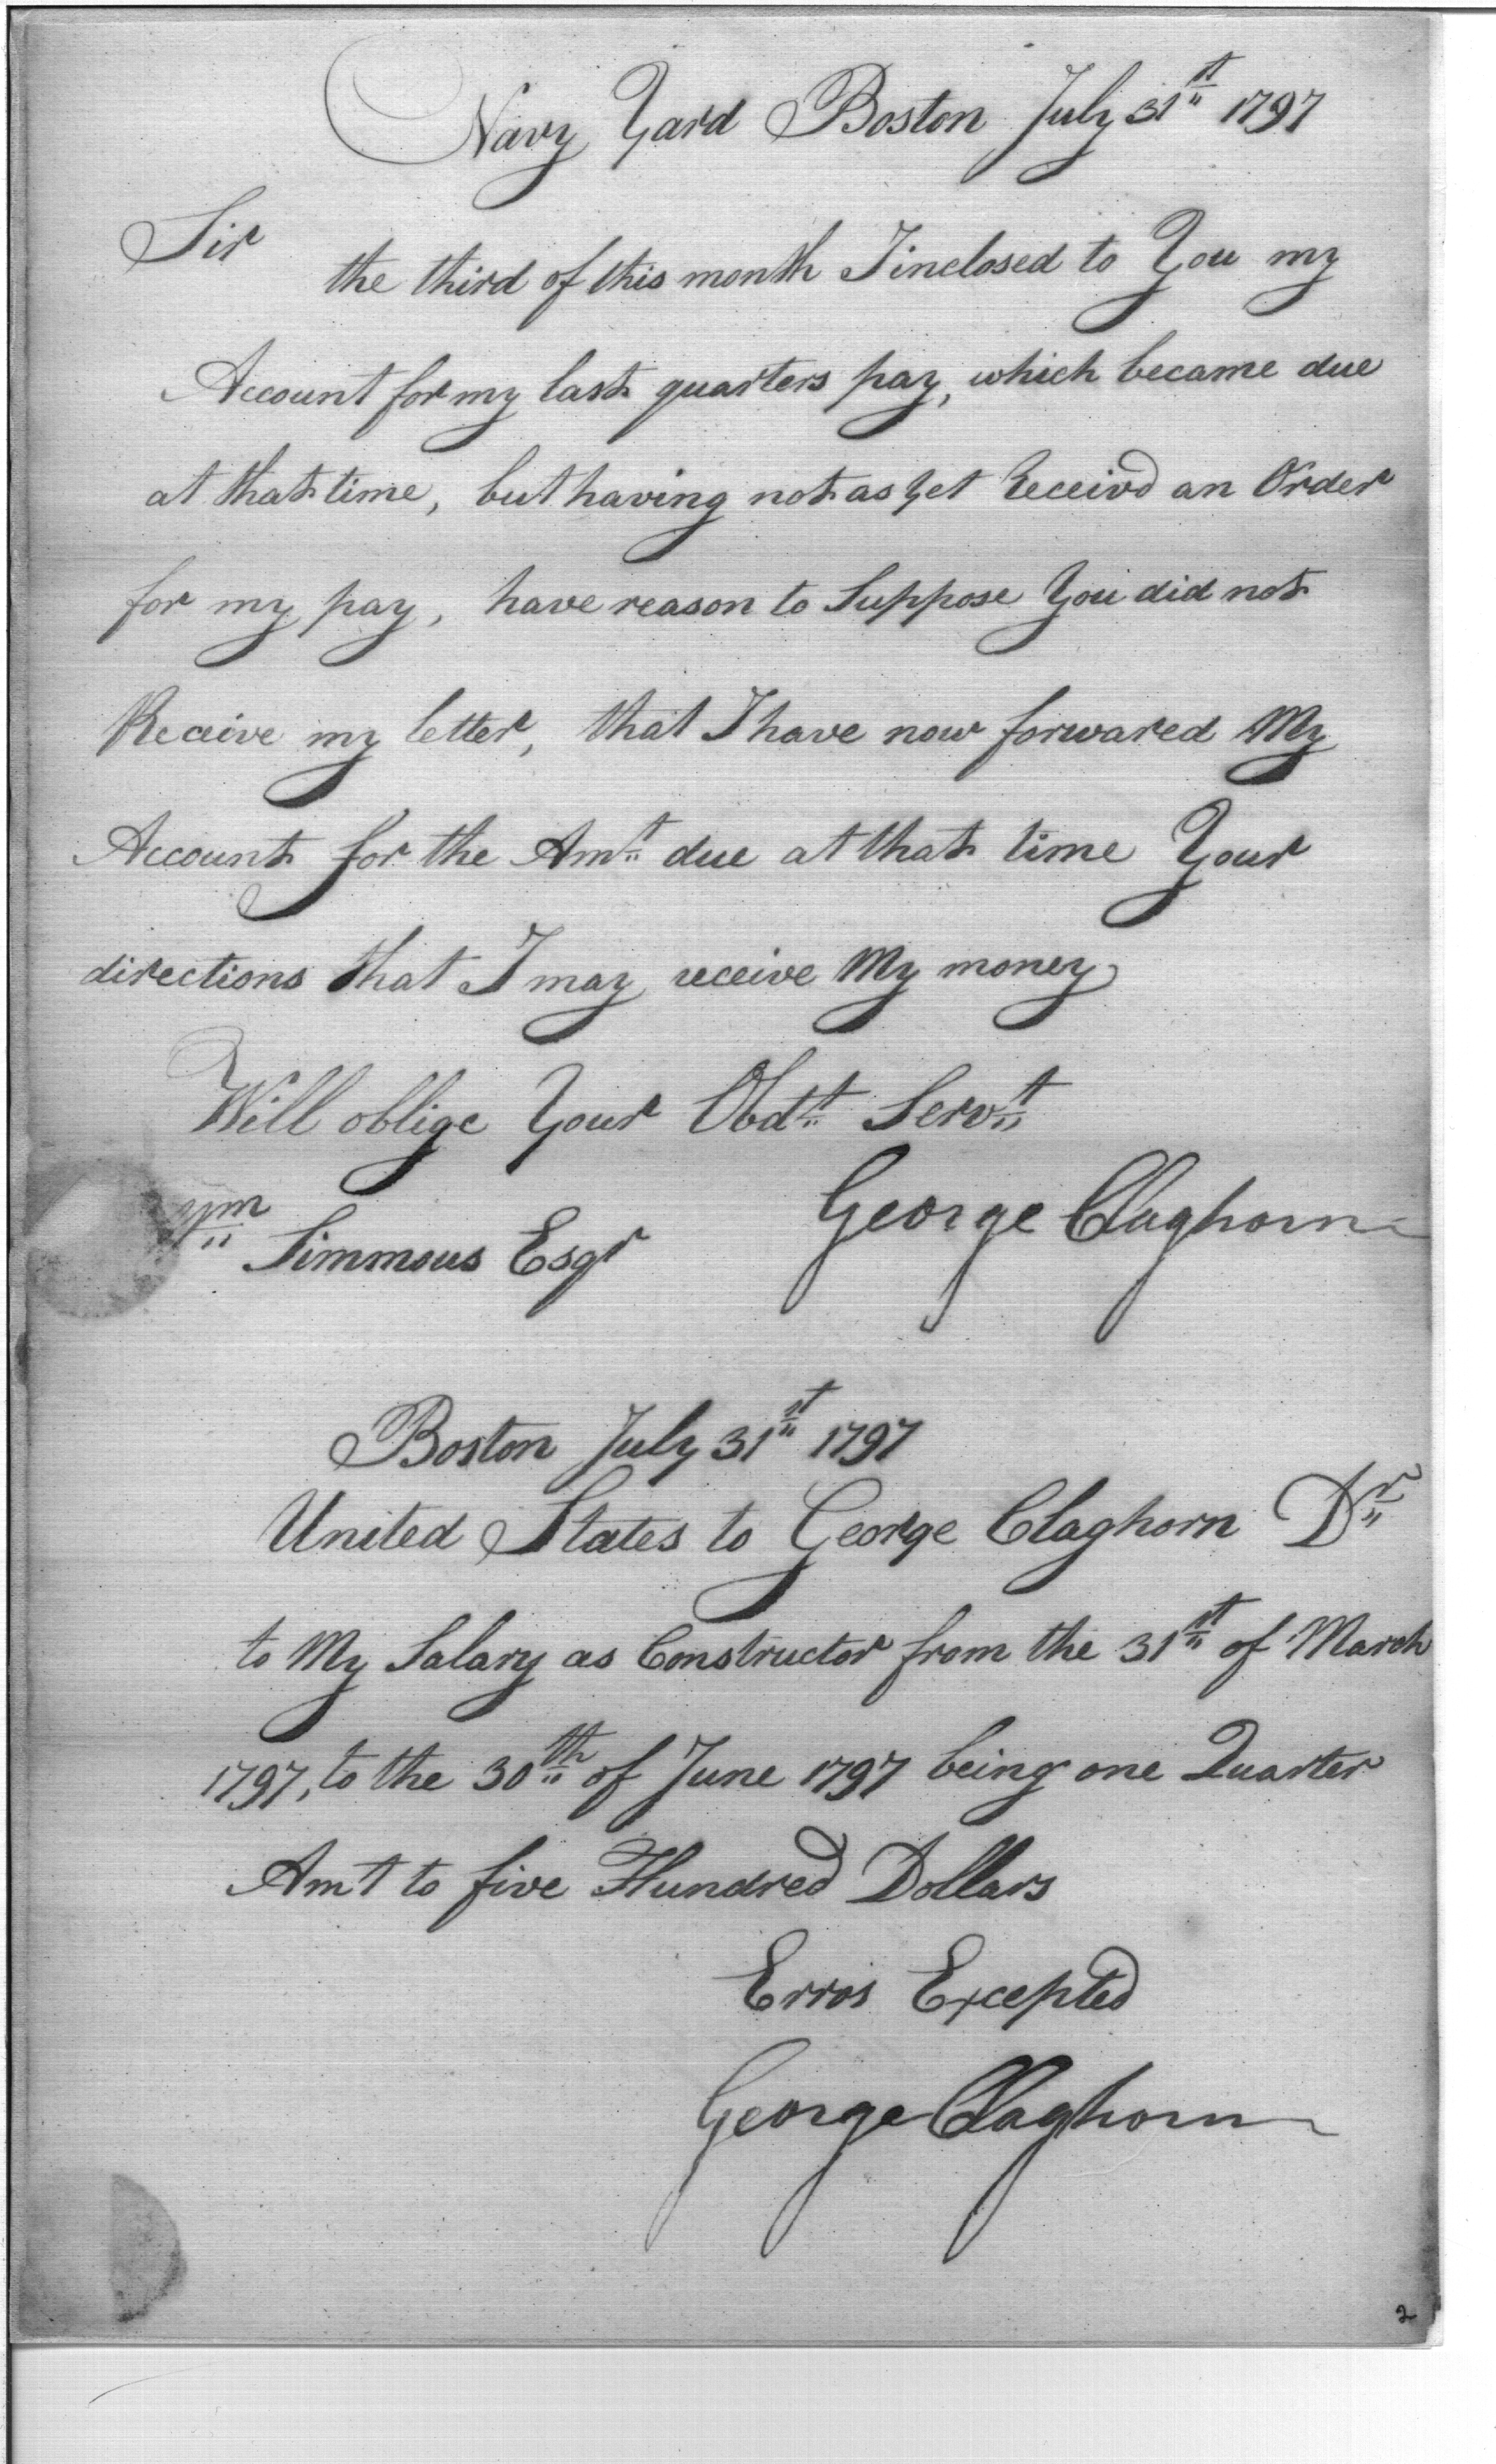 Navy Yard Boston July 31st 1797
Sir
the third of this month I inclosed to You my
Account for my last quarters pay, which became due
at that time, but having not as yet Receivd an Order
for my pay, have reason to Suppose You did not
Receive my letter, that I have now forwared My
Account for the Amt due at that time Your
directions that I may receive My money
Will oblige Your Obdt Servt
George Claghorn
Wm Simmons Esqr
Boston July 31st 1797
United States to George Claghorn Dr
to My Salary as Constructor from the 31st of March
1797, to the 30th of June 1797 being one Quarter
Amt to five Hundred Dollars
Erros Excepted
George Claghorn
2